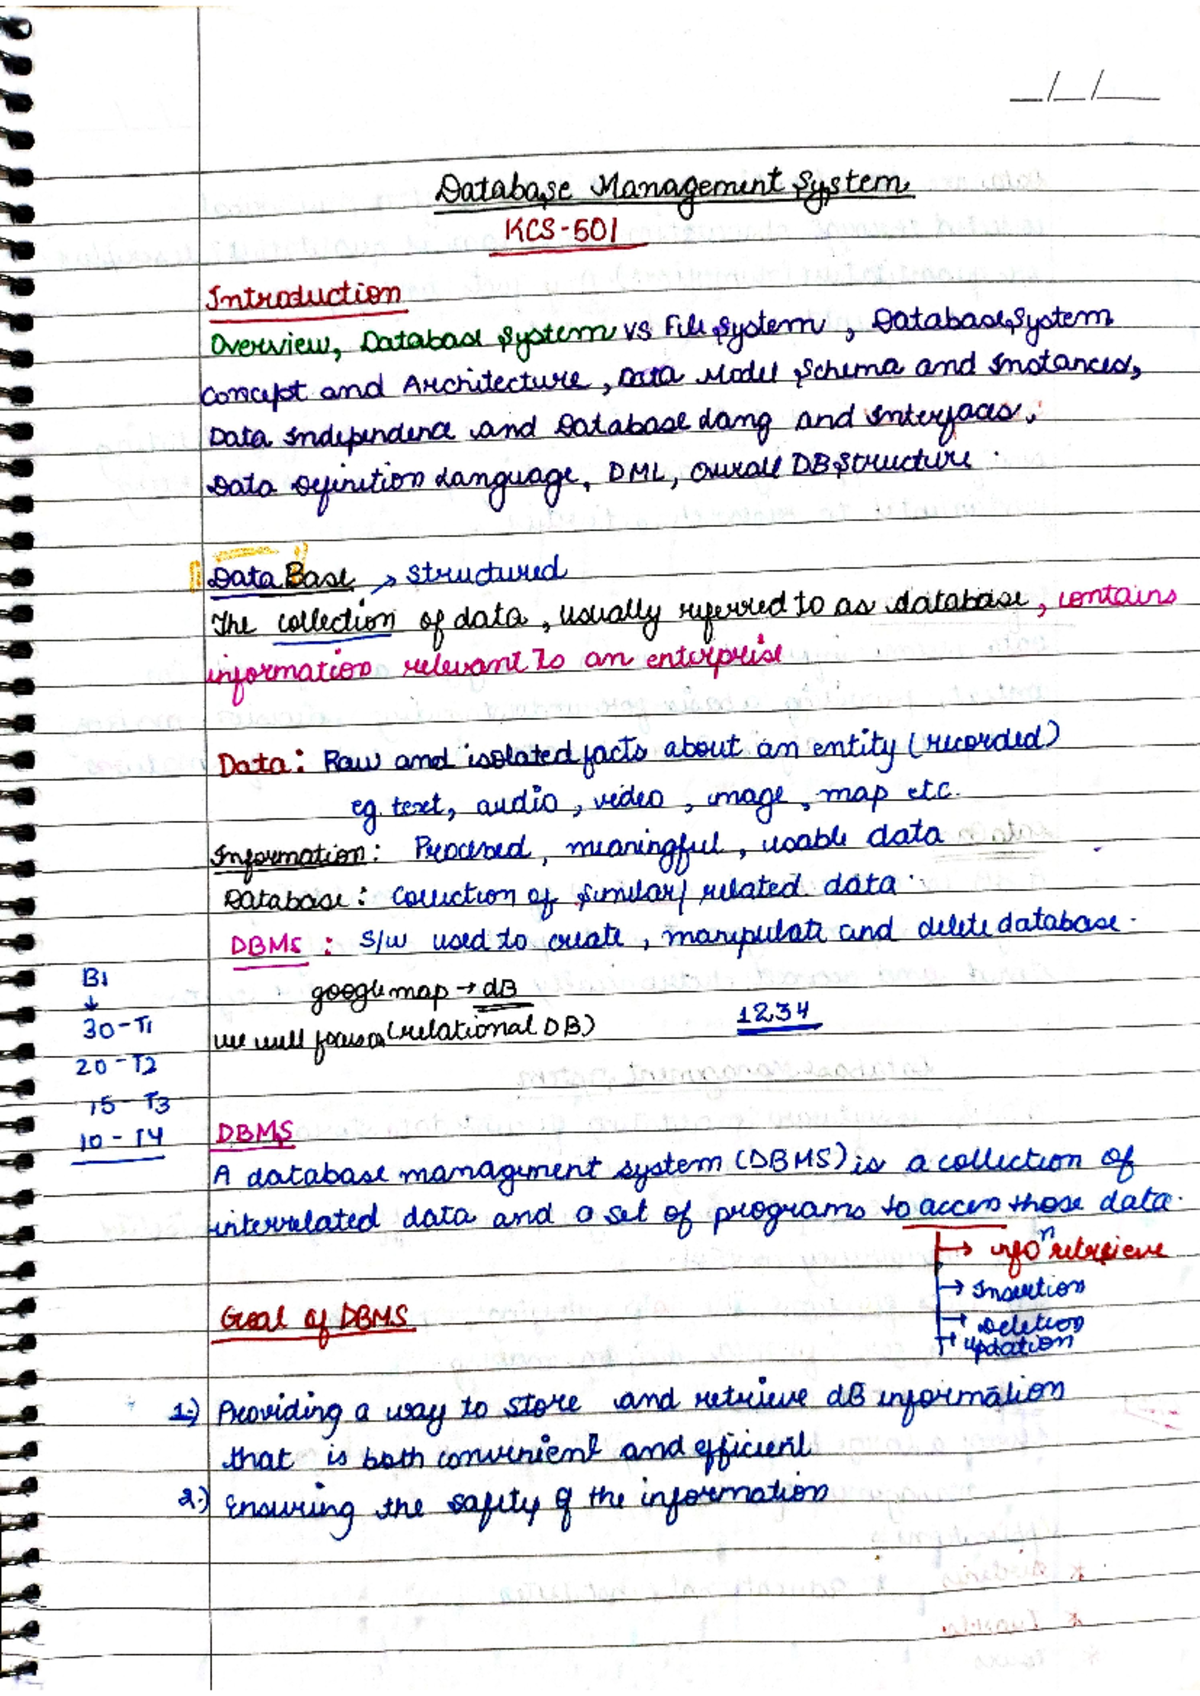 _/_/_
Database Management System
KCS-501
Introduction
Overview, Database System VS File System, Database System
Concept and Architecture, Data Model Schema and Instances,
Data Independence and Database Lang and Interfaces,
Data Definition Language, DML, Overall DB Structure.
DataBase → Structured
The collection of data, usually referred to as database, contains
information relevant to an enterprise
Data: Raw and isolated facts about an entity (recorded)
eg. text, audio, video, image, map etc.
Information: Processed, meaningful, usable data
Database: Collection of similar/related data.
DBMS: S/W used to create, manipulate and delete database.
google map → dB
we will focus on (relational DB)
1234
B1
↓
30-T1
20-T2
15-T3
10-T4
DBMS
A database management system (DBMS) is a collection of
interrelated data and a set of programs to access those data.
→ infoⁿ retrieve
→ Insertion
→ Deletion
→ updation
Goal of DBMS
1.) Providing a way to store and retrieve dB information
that is both convenient and efficient
2.) Ensuring the safety of the information